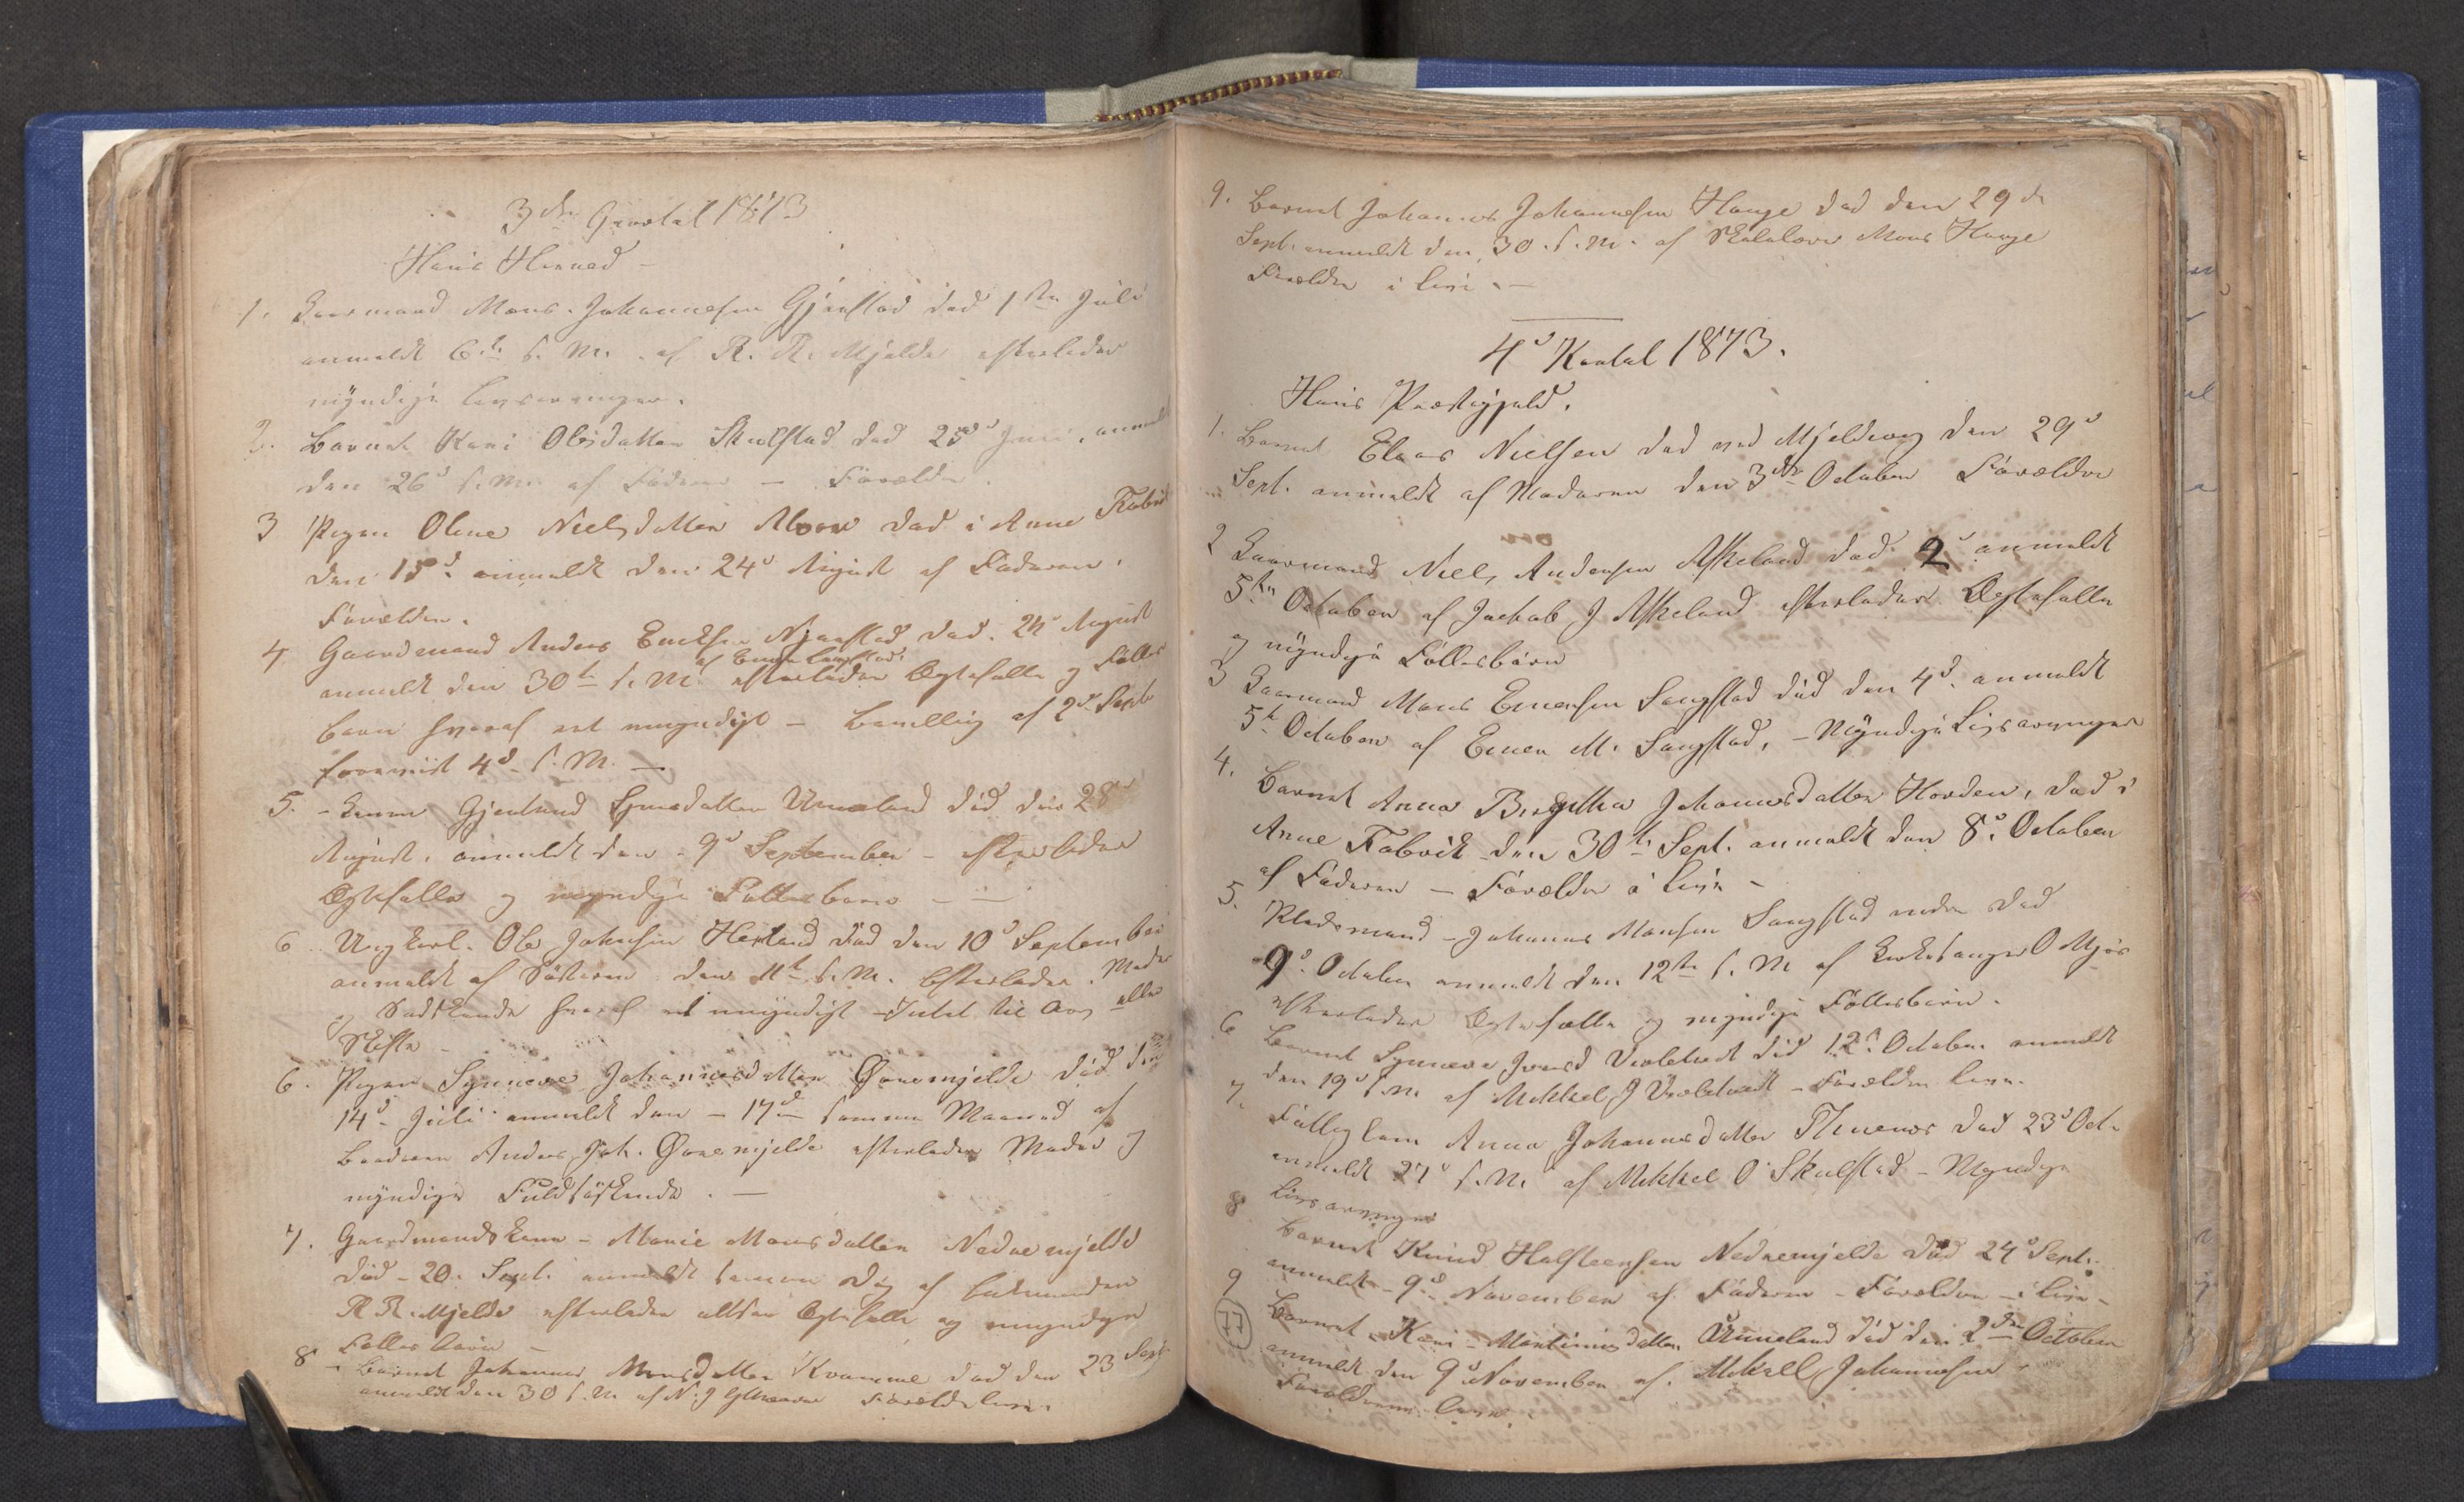 3die Qvartal 1873
Hans Herred -
1. Kaarmand Mons Johannesen Gjerstad død 1ste Juli
anmeldt 6te s. M. af R. R. Mjelde efterlader
myndige Livsarvinger.
2. Barnet Kari Olsdatter Skulstad død 25de Juni, anmeldt
den 26d s. M. af Faderen - Forældre
3 Pigen Oline Nielsdatter død i Arne Fabrik
den 15d anmeldt den 24d August af Faderen.
Forældre.
4 Gaardmand Anders Ericksen død 24d August
anmeldt den 30te s. M. efterlader Ægtefælle og Fælles
børn hvoraf et umyndigt - af 2d Septb
4d s. M. -
5. - Kone Gjertrud Unneland død den 28d
August, anmeldt den 9d September - efterlader
Ægtefælle og myndige Fællesbørn -
6 Ungkarl Ole Johnsen Herland død den 10d September
anmeldt af Søsteren den 11te s. M. Efterlader Moder
og Sødskende hvoraf et umyndigt - Intet til Arv eller
Skifte
6. Pigen Synneve Johannesdatter Øvremjelde død den
14d Juli anmeldt den - 17d samme Maaned af
Broderen Anders Joh. Øvremjelde efterlader Moder og
myndige Fuldsøskende. -
7. Gaardmandskone - Marie Monsdatter Nedremjelde
død - 20. Sept. anmeldt samme Dag af Lensmanden
R. R. Mjelde efterlader Ægtefælle og umyndige
Fælles børn -
8 Barnet Johannes Monsdatter Kvamme død den 23 Sept
anmeldt den 30 s. M. af N. J. Forældre leve.
9. Barnet Johannes Johannesen Hauge død den 29de
Sept. anmeldt den 30. s. M. af Skolelærer Mons Hauge
Forældre i live. -
4d Kvartal 1873.
Hans Præstegjeld.
1. Barnet Elias Nielsen død ved Mjeldevig den 29d
Sept. anmeldt af Moderen den 3die October Forældre
2 Kaarmand Niels Andersen Askeland død 2d anmeldt
5te October af Jackob J Askeland efterlader Ægtefælle
og myndige Fællesbørn
3 Kaarmand Mons Ennersen Songstad død den 4d anmeldt
5te October af Enner M. Songstad, - Myndige Livsarvinger
4. Barnet Anna Birgitha Johannesdatter Horden, død i
Arne Fabrik den 30te Sept. anmeldt den 8d October
af Faderen - Forældre i live -
5. Johannes Monsen Songstad død
9d October anmeldt den 12te s. M. af Kirkesanger O Mjøs
efterlader Ægtefælle og myndige Fællesbørn.
6 Barnet Synneve død 12d October anmeldt
den 19d s. M. af Mikkel J - Forældre leve.
7. Fattiglem Anna Johannesdatter død 23d Oct.
anmeldt 27d s. M. af Mikkel O Skulstad - Myndige
Livsarvinger
8 Barnet Knud Halsteensen Nedremjelde død 24d Sept.
anmeldt - 9d November af Faderen - Forældre - i live -
9 Barnet Kari - Martinusdatter Unneland død den 2den October
77
anmeldt den 9d November af Mikkel Johannesen
Forældrene leve.